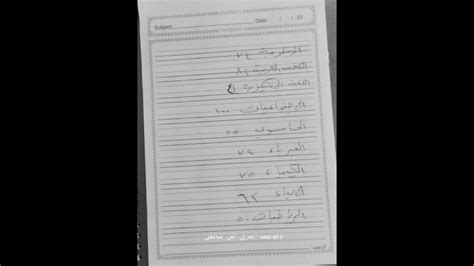 Subject: Date: / / 20
الإسلامية ٧٤
اللغة العربية ٨٤
اللغة الإنكليزية
الاجتماعيات ١٠٠
الحاسوب ٧٥
الفيزياء ٧٢
الكيمياء ٧٥
الأحياء ٦٢
الرياضيات ٥٠